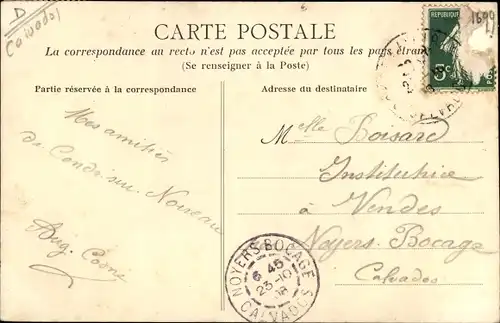 D
Calvados
1699
CARTE POSTALE
La correspondance au recto n'est pas acceptée par tous les pays étran
(Se renseigner à la Poste)
RÉPUBLIQUE
5c
CALVADOS
Partie réservée à la correspondance
Adresse du destinataire
Mes amitiés
de Condé-sur-Noireau
Aug.
Melle Boisard
Institutrice
à Vendes
Noyers-Bocage
Calvados
NOYERS-BOCAGE
6 45
23-10
08
CALVADOS